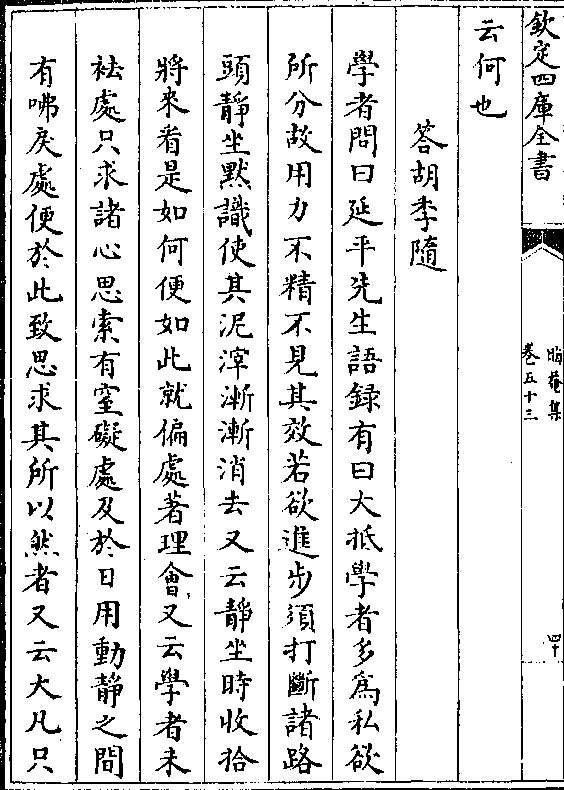 欽定四庫全書
晦菴集
卷五十三
四十
云何也
答胡季隨
學者問曰延平先生語録有曰大抵學者多爲私欲
所分故用力不精不見其效若欲進步須打斷諸路
頭靜坐默識使其泥滓漸漸消去又云靜坐時收拾
將來看是如何便如此就偏處著理會又云學者未
袪處只求諸心思索有窒礙處及於日用動靜之間
有咈戾處便於此致思求其所以然者又云大凡只